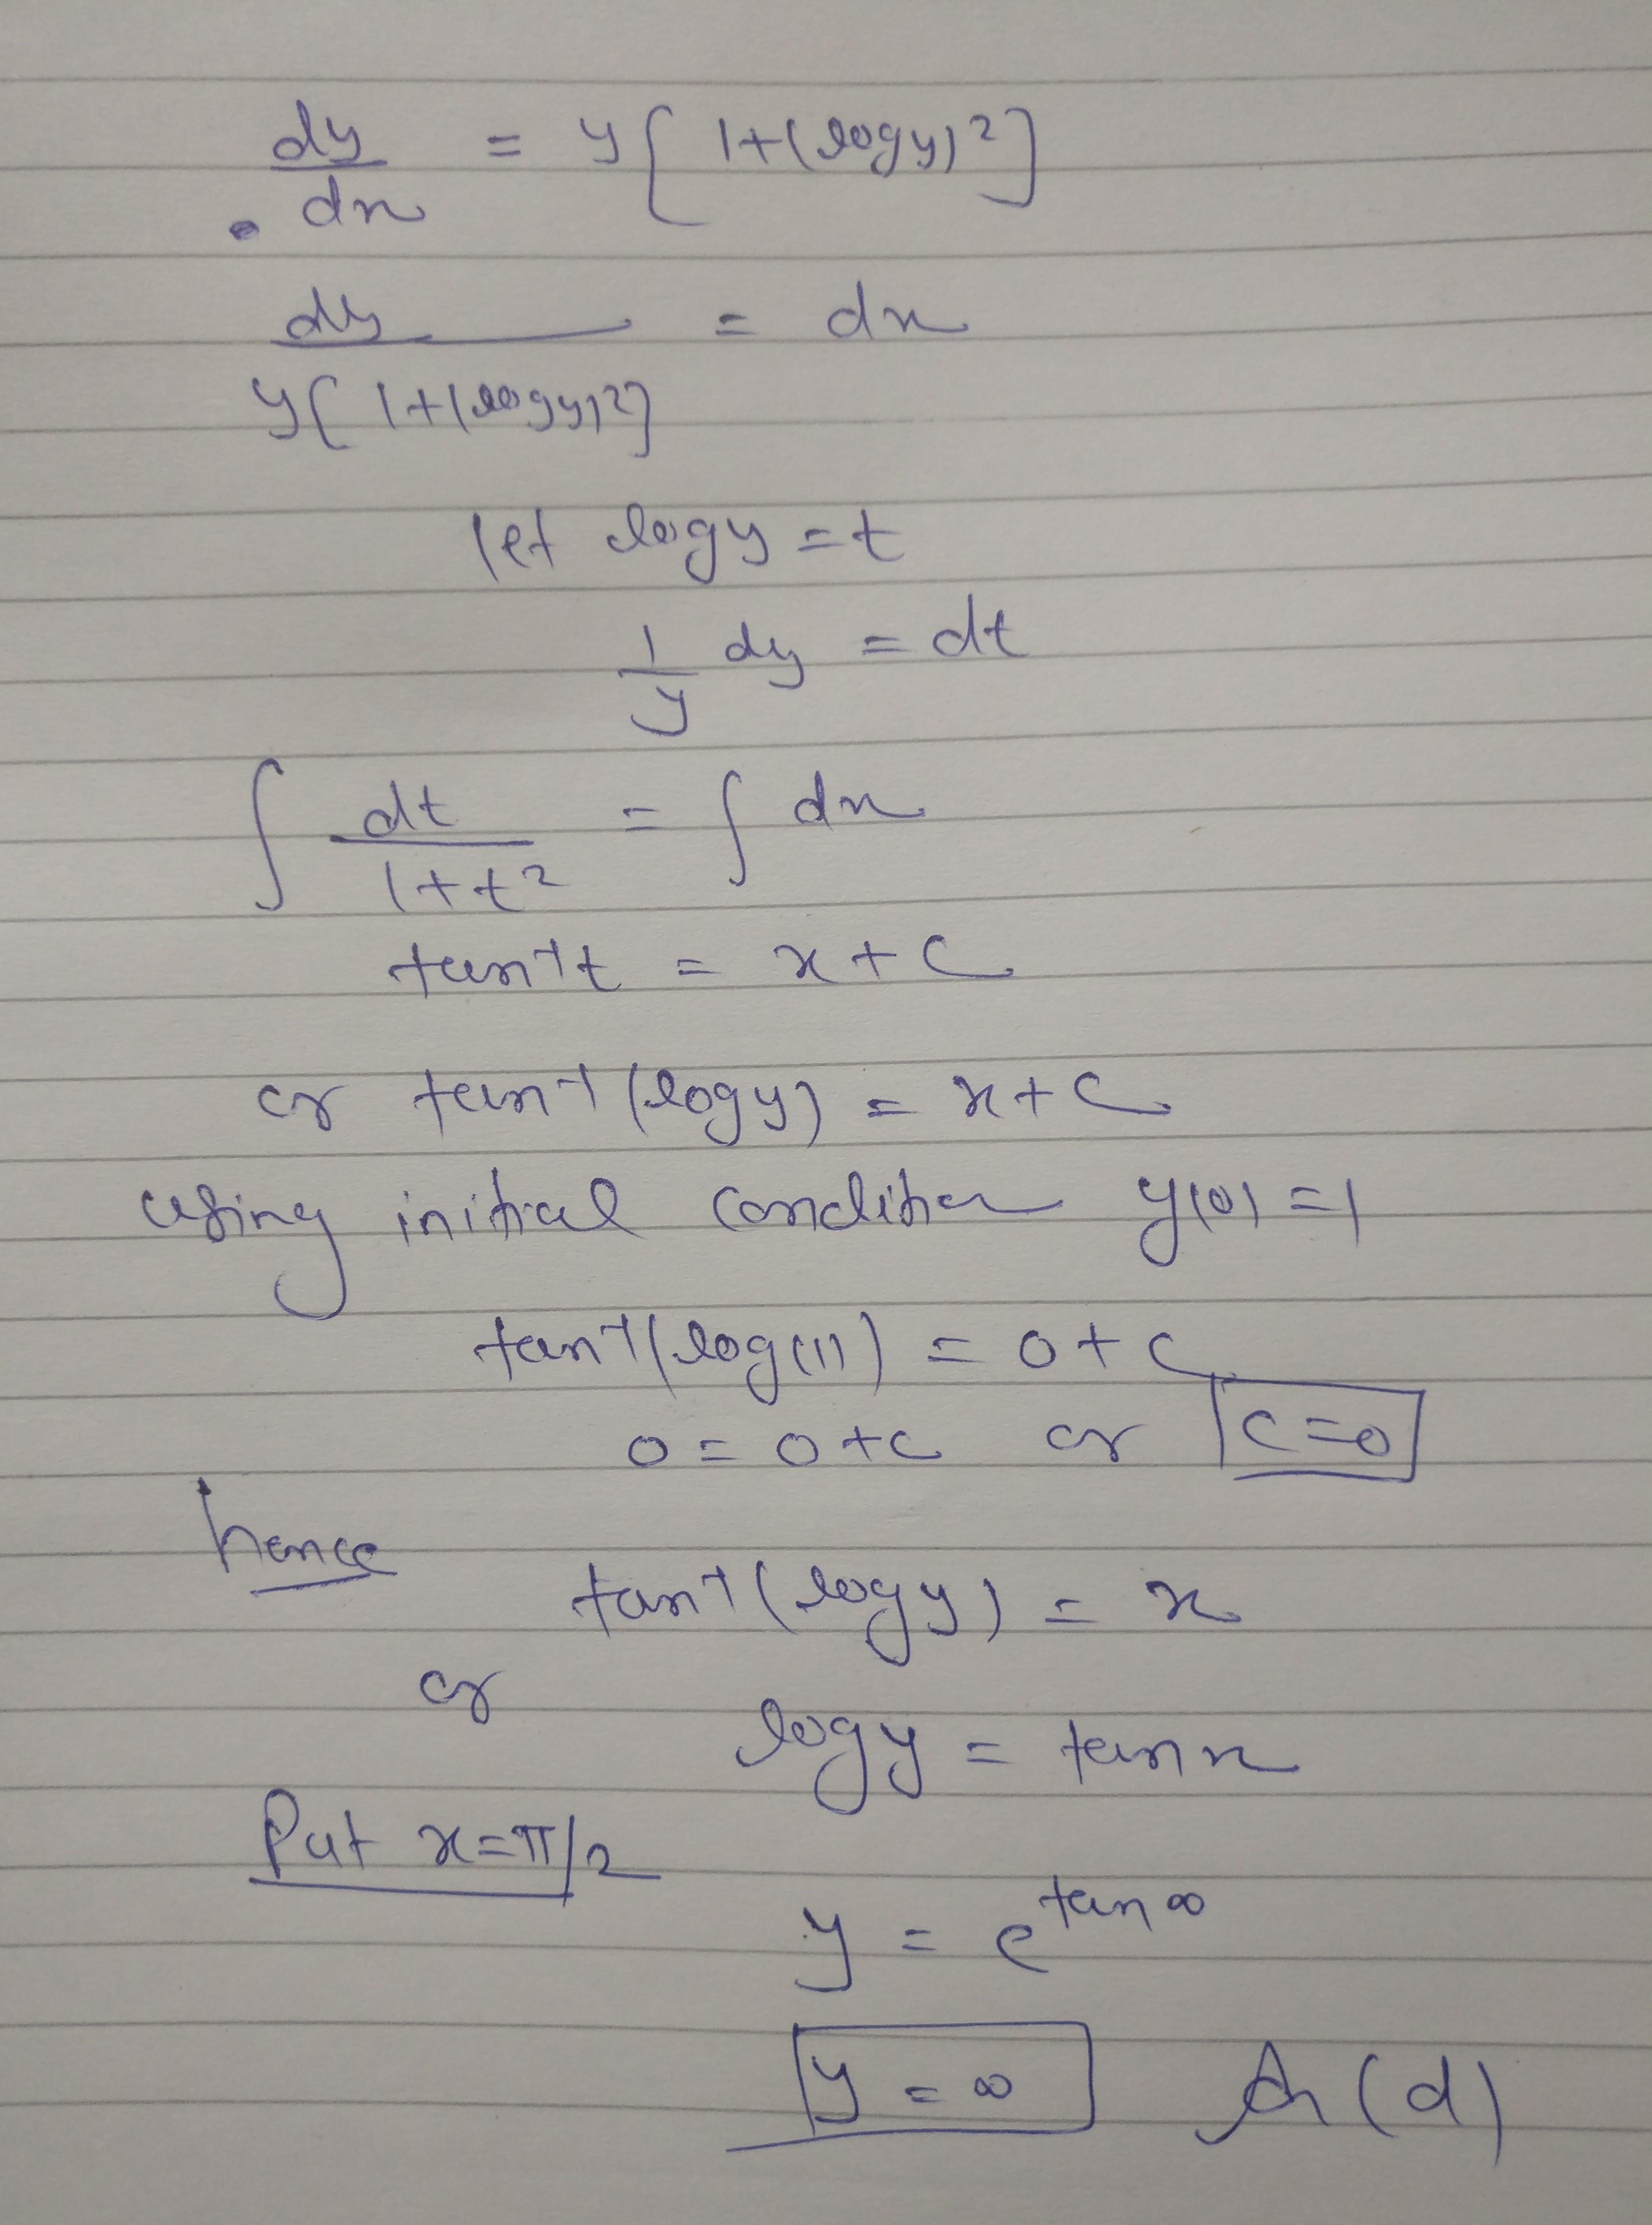 dy/dx = y[1+(logy)²]
dy/y[1+(logy)²] = dx
let logy = t
1/y dy = dt
∫ dt/1+t² = ∫ dx
tan⁻¹t = x+c
or tan⁻¹(logy) = x+c
using initial condition y(0)=1
tan⁻¹(log(1)) = 0+c
0=0+c or c=0
hence
tan⁻¹(logy) = x
or
logy = tanx
Put x=π/2
y = e^tan∞
y = ∞ A (d)